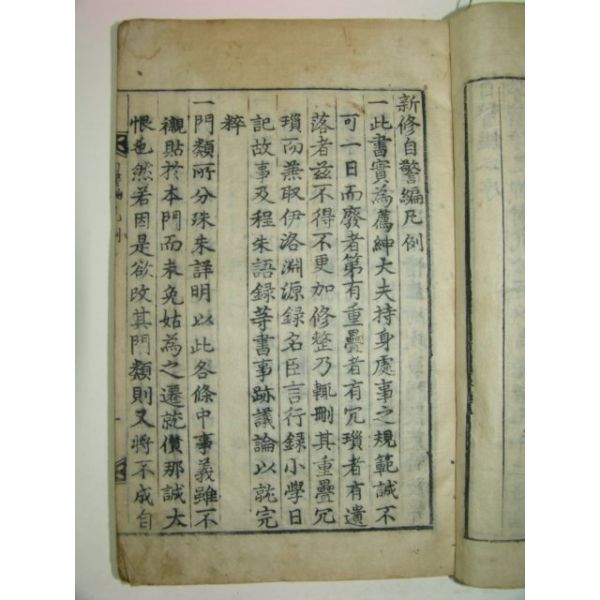 新修自警編凡例
一此書實為薦紳大夫持身處事之規範誠不
可一日而廢者第有重疊者有冗瑣者有遺
落者玆不得不更加修整乃輒刪其重疊冗
瑣而兼取伊洛淵源録名臣言行録小學日
記故事及程朱語録等書事跡議論以就完
粹
一門類所分殊未詳明以此各條中事義雖不
襯貼於本門而未免姑為之遷就儹那誠大
恨也然若因是欲改其門類則又將不成自